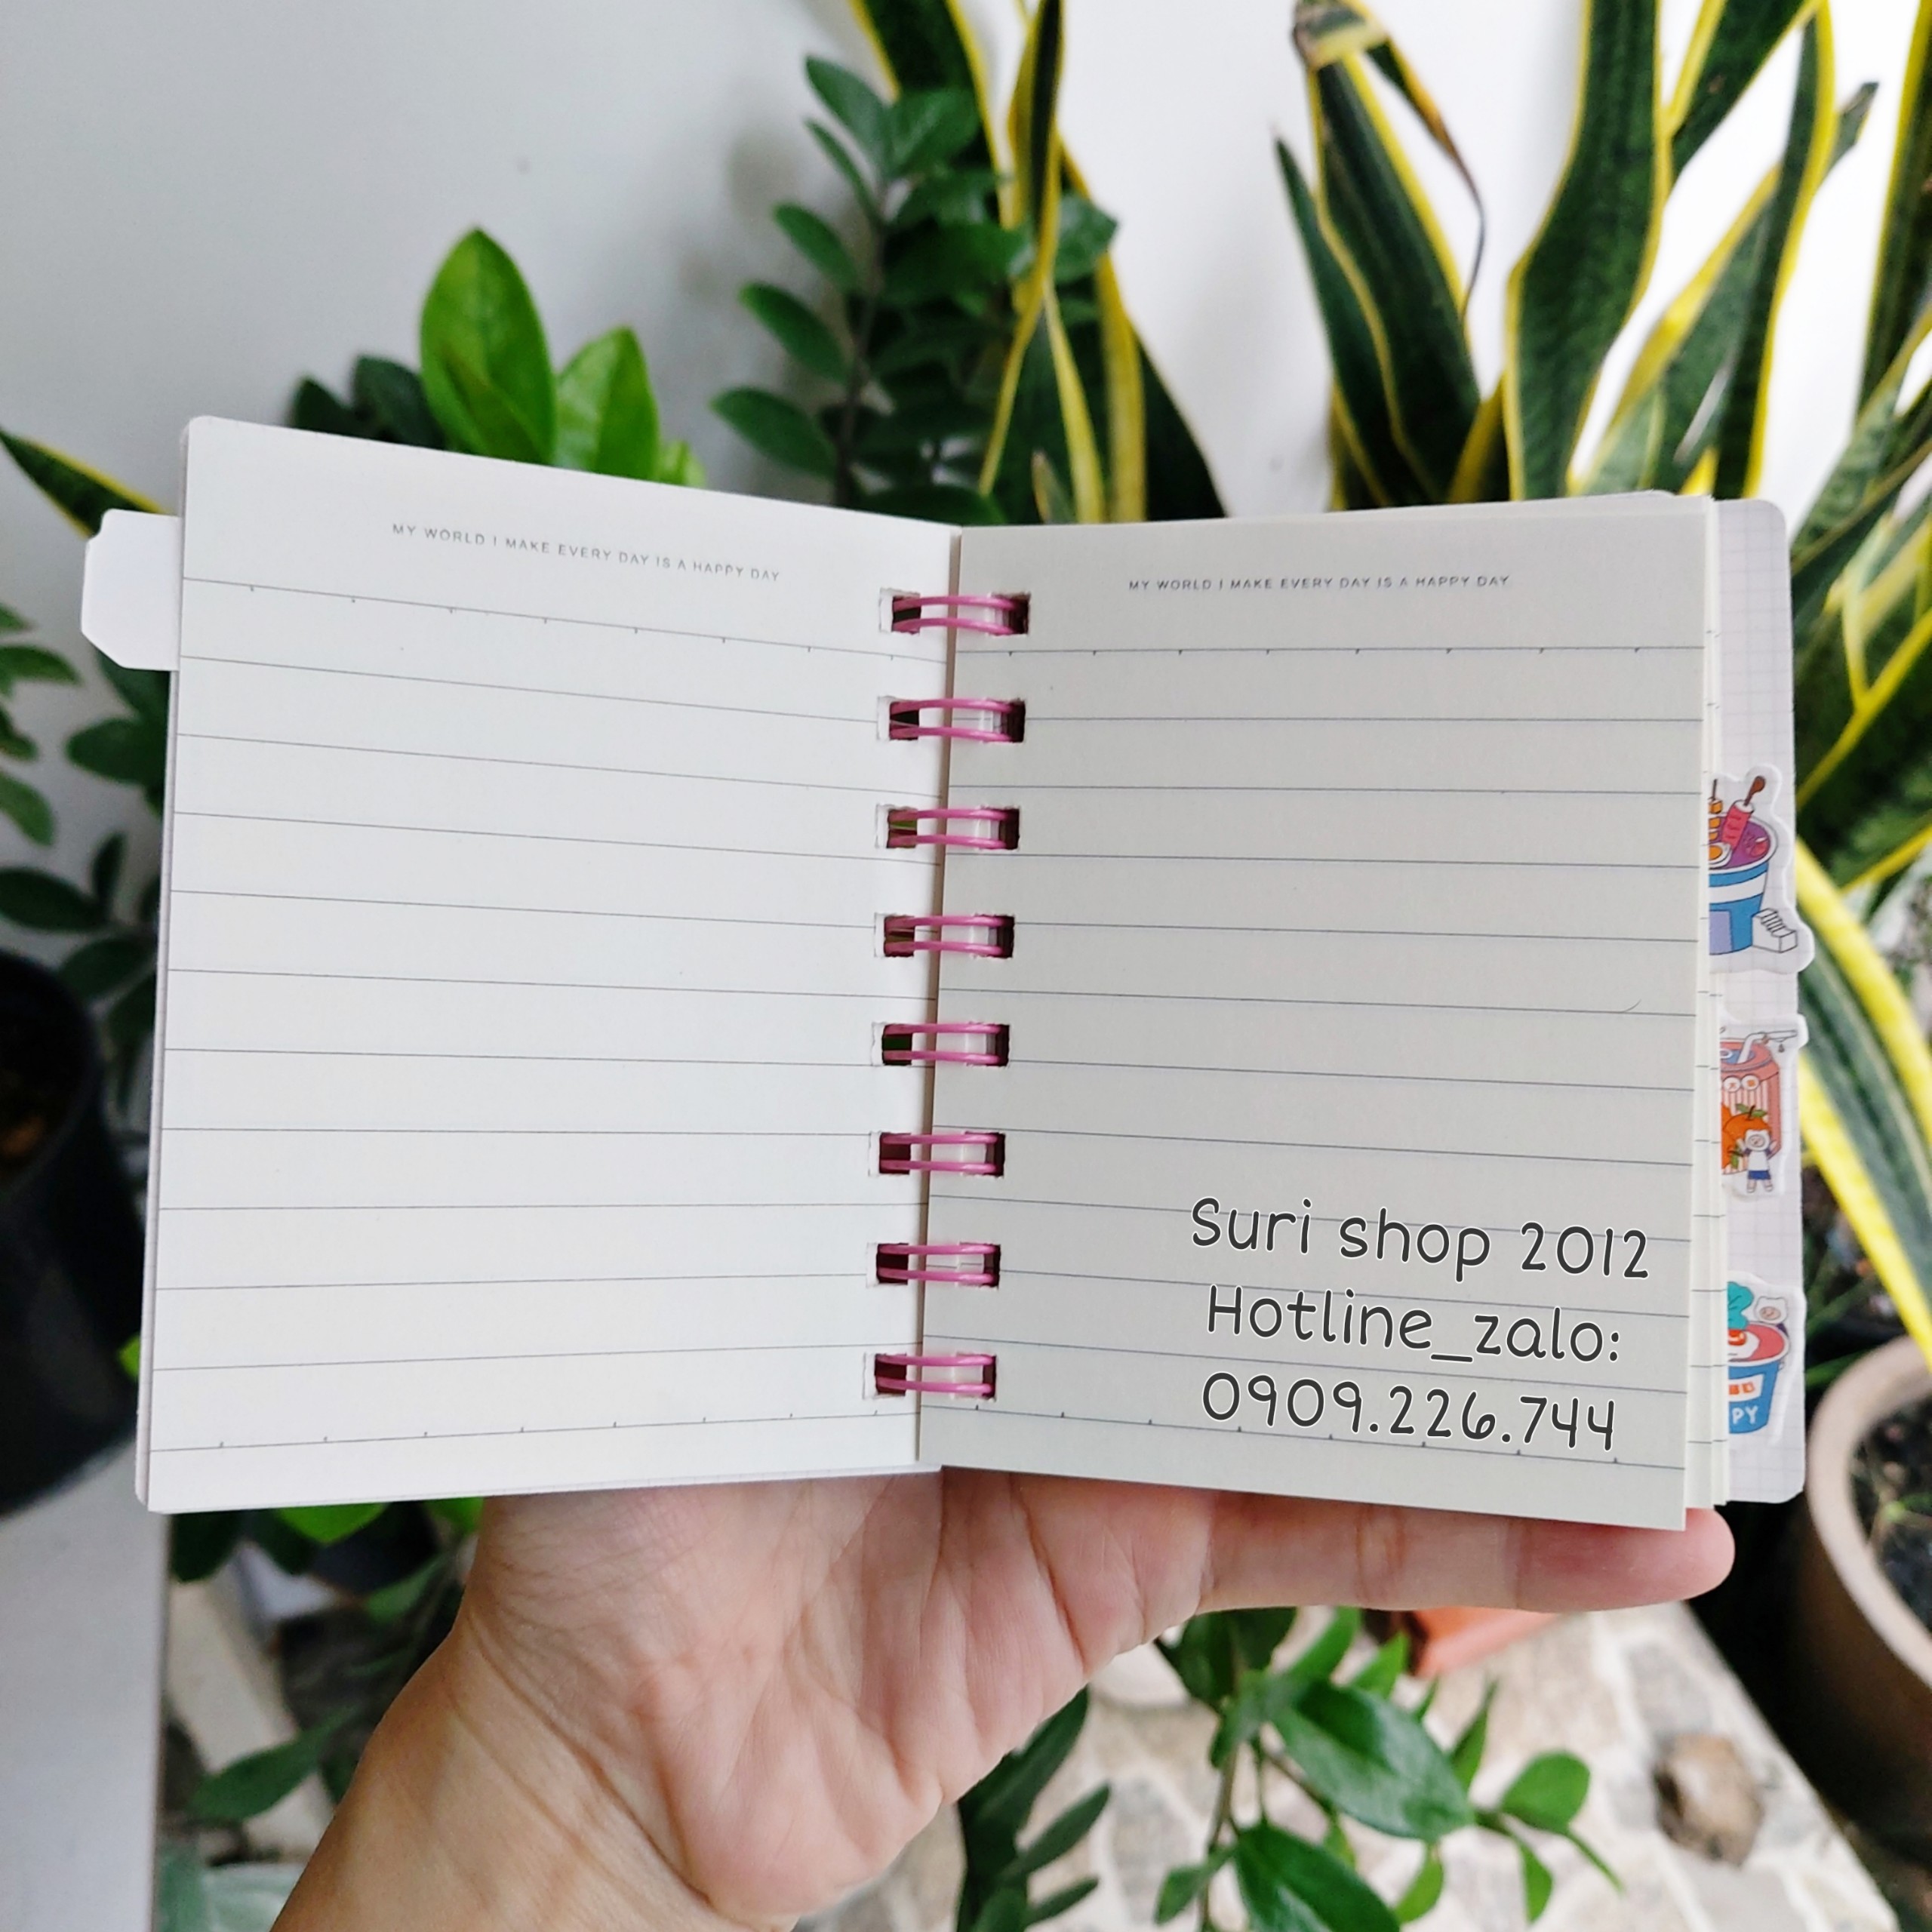 MY WORLD I MAKE EVERY DAY IS A HAPPY DAY
MY WORLD I MAKE EVERY DAY IS A HAPPY DAY
Suri shop 2012
Hotline_zalo:
0909.226.744
PY